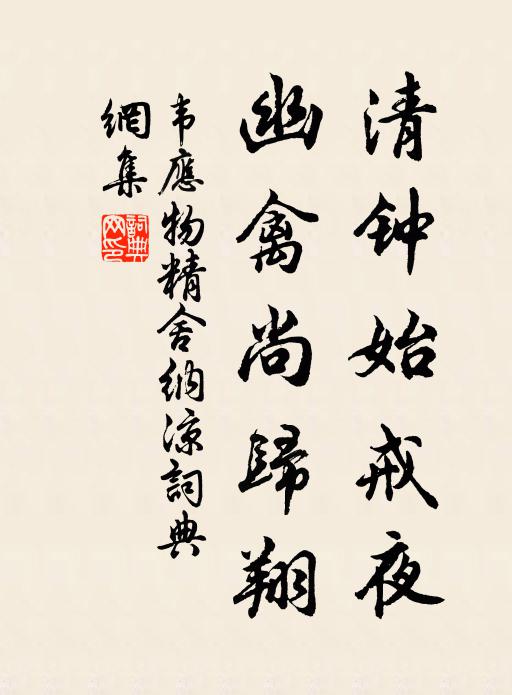 清钟始戒夜
幽禽尚歸翔
韦應物精舍纳凉詞典
網集
詞典网印